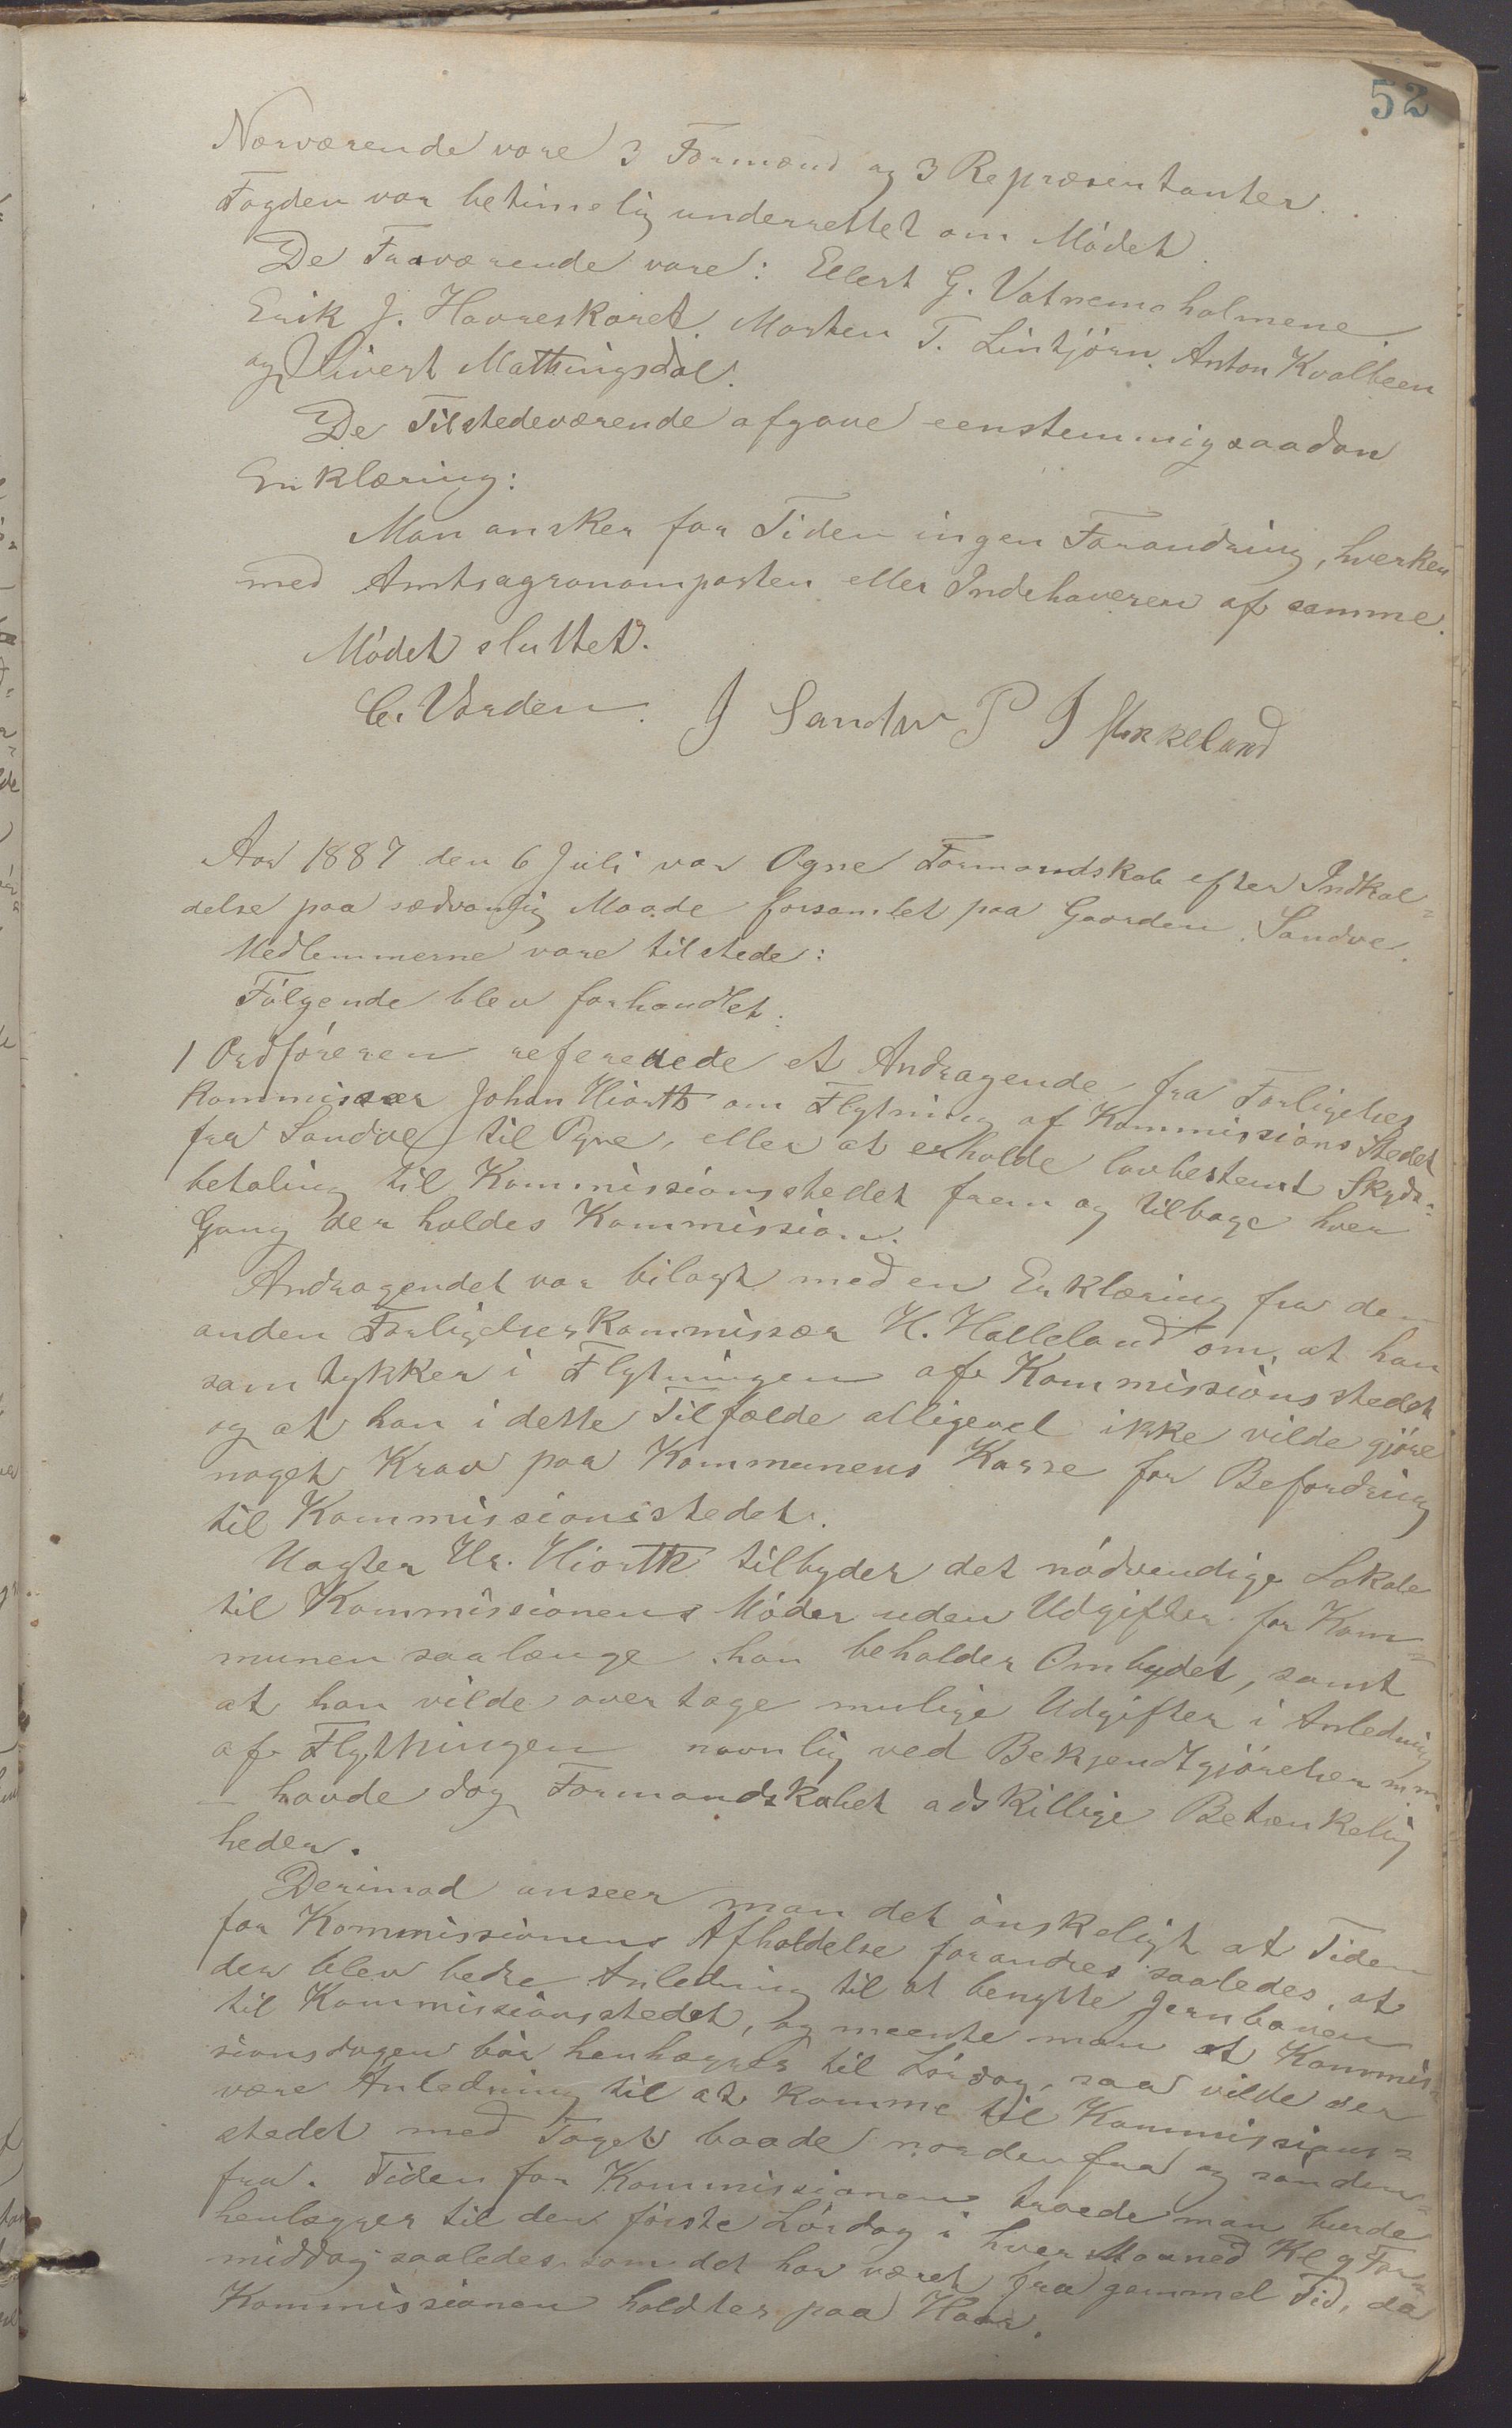 52
Nærværende vare 3 Formænd og 3 Repræsentanter.
Fogden var betimelig underrettet om Mødet.
De Fraværende vare: Ellert G. Vatnemoholmene
Erik J. Havreskaret, Morten T. Lintjörn, Anton Kvalbeen
og Sivert Mattingsdal.
De Tilstedeværende afgave eenstemmig saadan
Erklæring:
Man ønsker for Tiden ingen Forandring, hverken
med Amtsagronomposten eller Indehaveren af samme.
Mødet sluttet.
C. Varden. J Sandve P J Sirkeland
Aar 1887 den 6 Juli var Ogne Formandskab efter Indkal-
delse paa sædvanlig Maade forsamlet paa Gaarden Sandve.
Medlemmerne vare tilstede:
Følgende blev forhandlet:
1 Ordføreren refererede et Andragende fra Forligelses
kommissær Johan Hiorth om Flytning af Kommissions Stedet
fra Sandve til Ogne, eller at erholde lovbestemt Skyds-
betaling til Kommissionsstedet frem og tilbage hver
Gang der holdes Kommission.
Andragendet var bilagt med en Erklæring fra den
anden Forligelseskommissær H. Halleland om, at han
samtykker i Flytningen af Kommissionsstedet
og at han i dette Tilfælde alligevel ikke vilde gjøre
noget Krav paa Kommunens Kasse for Befordring
til Kommissionsstedet.
Uagtet Hr. Hiorth tilbyder det nødvendige Lokale
til Kommissionens Møder uden Udgifter for Kom-
munen saalænge han beholder Ombudet, samt
at han vilde overtage mulige Udgifter i Anledning
af Flytningen navnlig ved Bekjendtgjørelser m.m.
– havde dog Formandskabet adskillige Betænkelig
heder.
Derimod anseer man det ønskeligt at Tiden
for Kommissionens Afholdelse forandres saaledes, at
der blev bedre Anledning til at benytte Jernbanen
til Kommissionsstedet, og meente man at Kommis-
sionsdagen bør henlægges til Lørdag, saa vilde der
være Anledning til at komme til Kommissions-
stedet med Toget baade nordenfra og sønden-
fra. Tiden for Kommissionen troede man burde
henlægges til den første Lørdag i hver Maaned Kl 9 For-
middag saaledes som det har været fra gammel Tid, da
Kommissionen holdtes paa Haar.